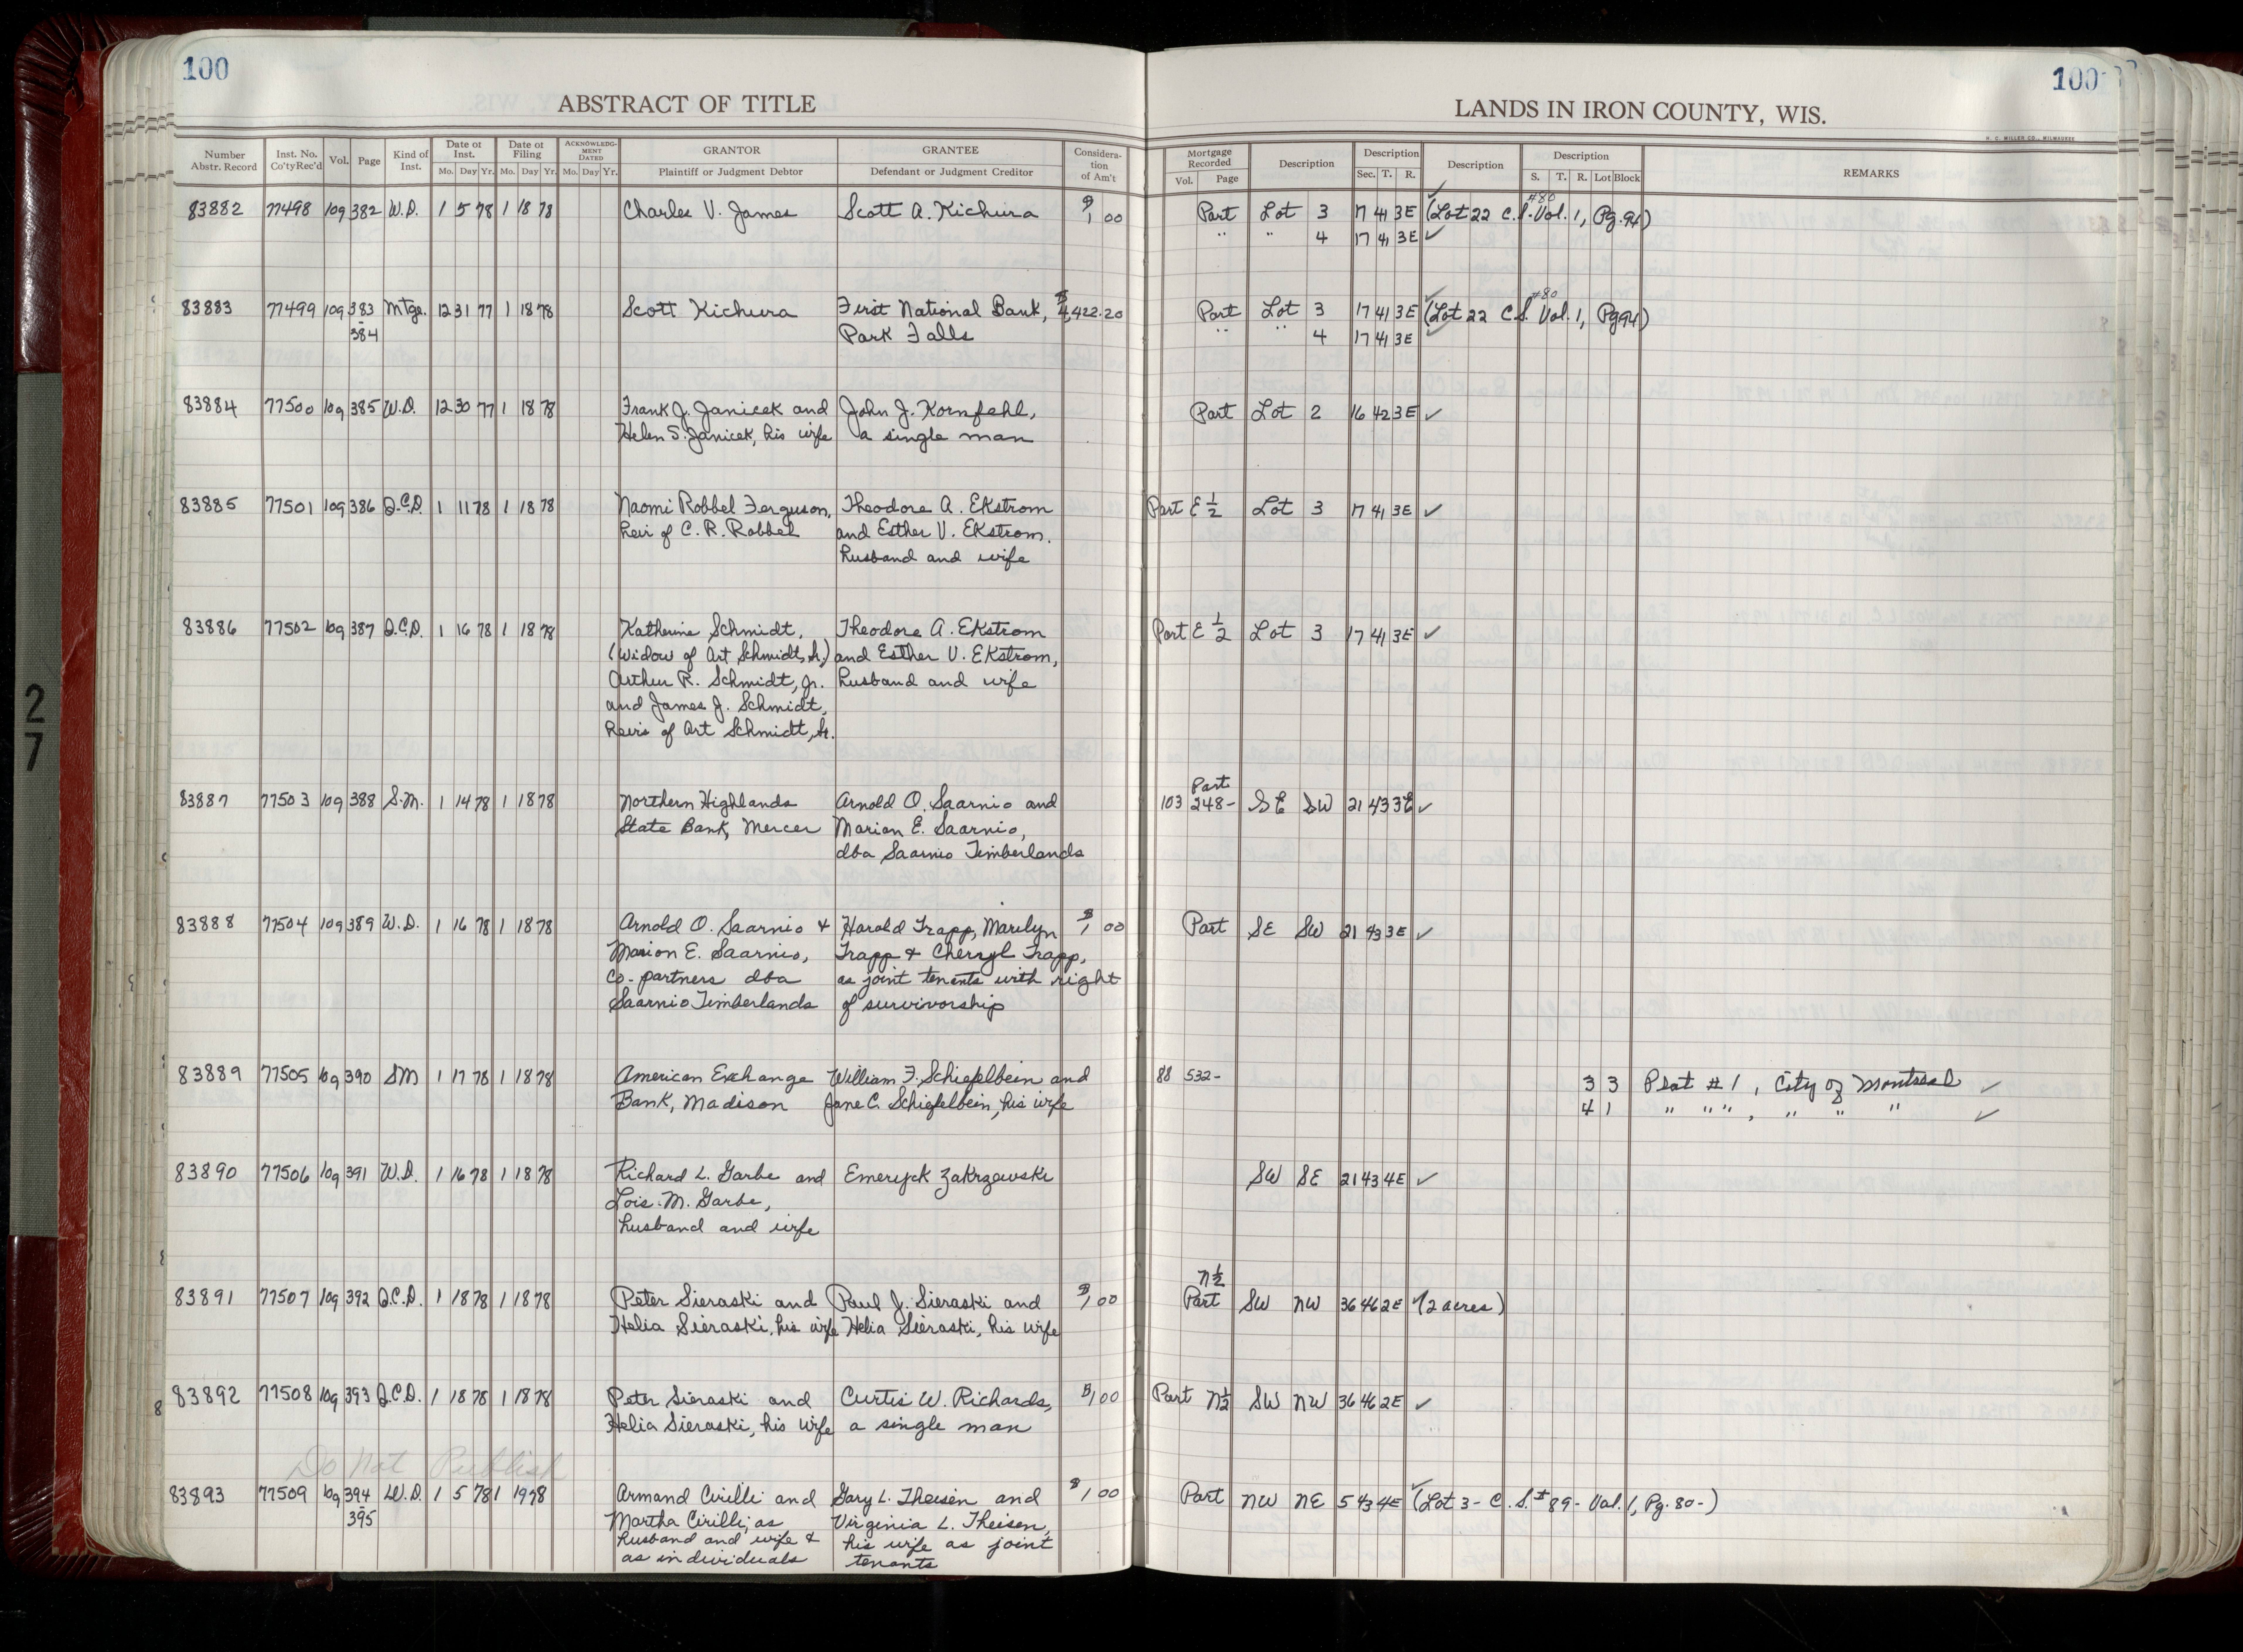 100
100
ABSTRACT OF TITLE
LANDS IN IRON COUNTY, WIS.
H. C. MILLER CO., MILWAUKEE
Number Abstr. Record Inst. No. Co'ty Rec'd Vol. Page Kind of Inst. Date of Inst. Mo. Day Yr. Date of Filing Mo. Day Yr. ACKNOWLEDGMENT DATED Mo. Day Yr. GRANTOR Plaintiff or Judgment Debtor GRANTEE Defendant or Judgment Creditor Consideration of Am't Mortgage Recorded Vol. Page Description Description Sec. T. R. Description Description S. T. R. Lot Block REMARKS
83882 77498 109 382 W.D. 1 5 78 1 18 78 Charles V. James Scott A. Kichura $1,00 Part Lot 3 17 41 3E ✓ (Lot 22 C.S. #80 Vol. 1, Pg. 94)
" " 4 17 41 3E ✓
83883 77499 109 383 Mtge. 12 31 77 1 18 78 Scott Kichura First National Bank, $4,422.20 Part Lot 3 17 41 3E ✓ (Lot 22 C.S. #80 Vol. 1, Pg 94)
- 384 Park Falls " " 4 17 41 3E ✓
83884 77500 109 385 W.D. 12 30 77 1 18 78 Frank J. Janicek and John J. Kornfehl, Part Lot 2 16 42 3E ✓
Helen S. Janicek, his wife a single man
83885 77501 109 386 Q.C.D. 1 11 78 1 18 78 Naomi Robbel Ferguson, Theodore A. Ekstrom Part E 1/2 Lot 3 17 41 3E ✓
heir of C. R. Robbel and Esther V. Ekstrom.
husband and wife
83886 77502 109 387 Q.C.D. 1 16 78 1 18 78 Katherine Schmidt, Theodore A. Ekstrom Part E 1/2 Lot 3 17 41 3E ✓
(Widow of Art Schmidt, Sr.) and Esther V. Ekstrom,
Arthur R. Schmidt, Jr. husband and wife
and James J. Schmidt,
Heirs of Art Schmidt, Sr.
Part
83887 77503 109 388 S.M. 1 14 78 1 18 78 Northern Highlands Arnold O. Saarnio and 103 248- SE SW 21 43 3E ✓
State Bank, Mercer Marion E. Saarnio,
dba Saarnio Timberlands
83888 77504 109 389 W.D. 1 16 78 1 18 78 Arnold O. Saarnio + Harold Trapp, Marilyn $1,00 Part SE SW 21 43 3E ✓
Marion E. Saarnio, Trapp + Cherryl Trapp,
co-partners dba as joint tenants with right
Saarnio Timberlands of survivorship
83889 77505 109 390 SM 1 17 78 1 18 78 American Exchange William F. Schiefelbein and 88 532- 3 3 Plat #1, City of Montreal ✓
Bank, Madison Jane C. Schiefelbein, his wife 4 1 " " " , " " " ✓
83890 77506 109 391 W.D. 1 16 78 1 18 78 Richard L. Garbe and Emeryck Zakrzewski SW SE 21 43 4E ✓
Lois M. Garbe,
husband and wife
N 1/2
83891 77507 109 392 Q.C.D. 1 18 78 1 18 78 Peter Sieraski and Paul J. Sieraski and $1,00 Part SW NW 36 46 2E ✓ (2 acres)
Helia Sieraski, his wife Helia Sieraski, his wife
8 83892 77508 109 393 Q.C.D. 1 18 78 1 18 78 Peter Sieraski and Curtis W. Richards, $1,00 Part N 1/2 SW NW 36 46 2E ✓
Helia Sieraski, his wife a single man
Do Not Publish
83893 77509 109 394 W.D. 1 5 78 1 19 78 Armand Cirilli and Gary L. Theisen and $1,00 Part NW NE 5 43 4E ✓ (Lot 3 - C.S. #89 - Vol. 1, Pg. 80-)
- 395 Martha Cirilli, as Virginia L. Theisen,
husband and wife + his wife as joint
as individuals tenants
27